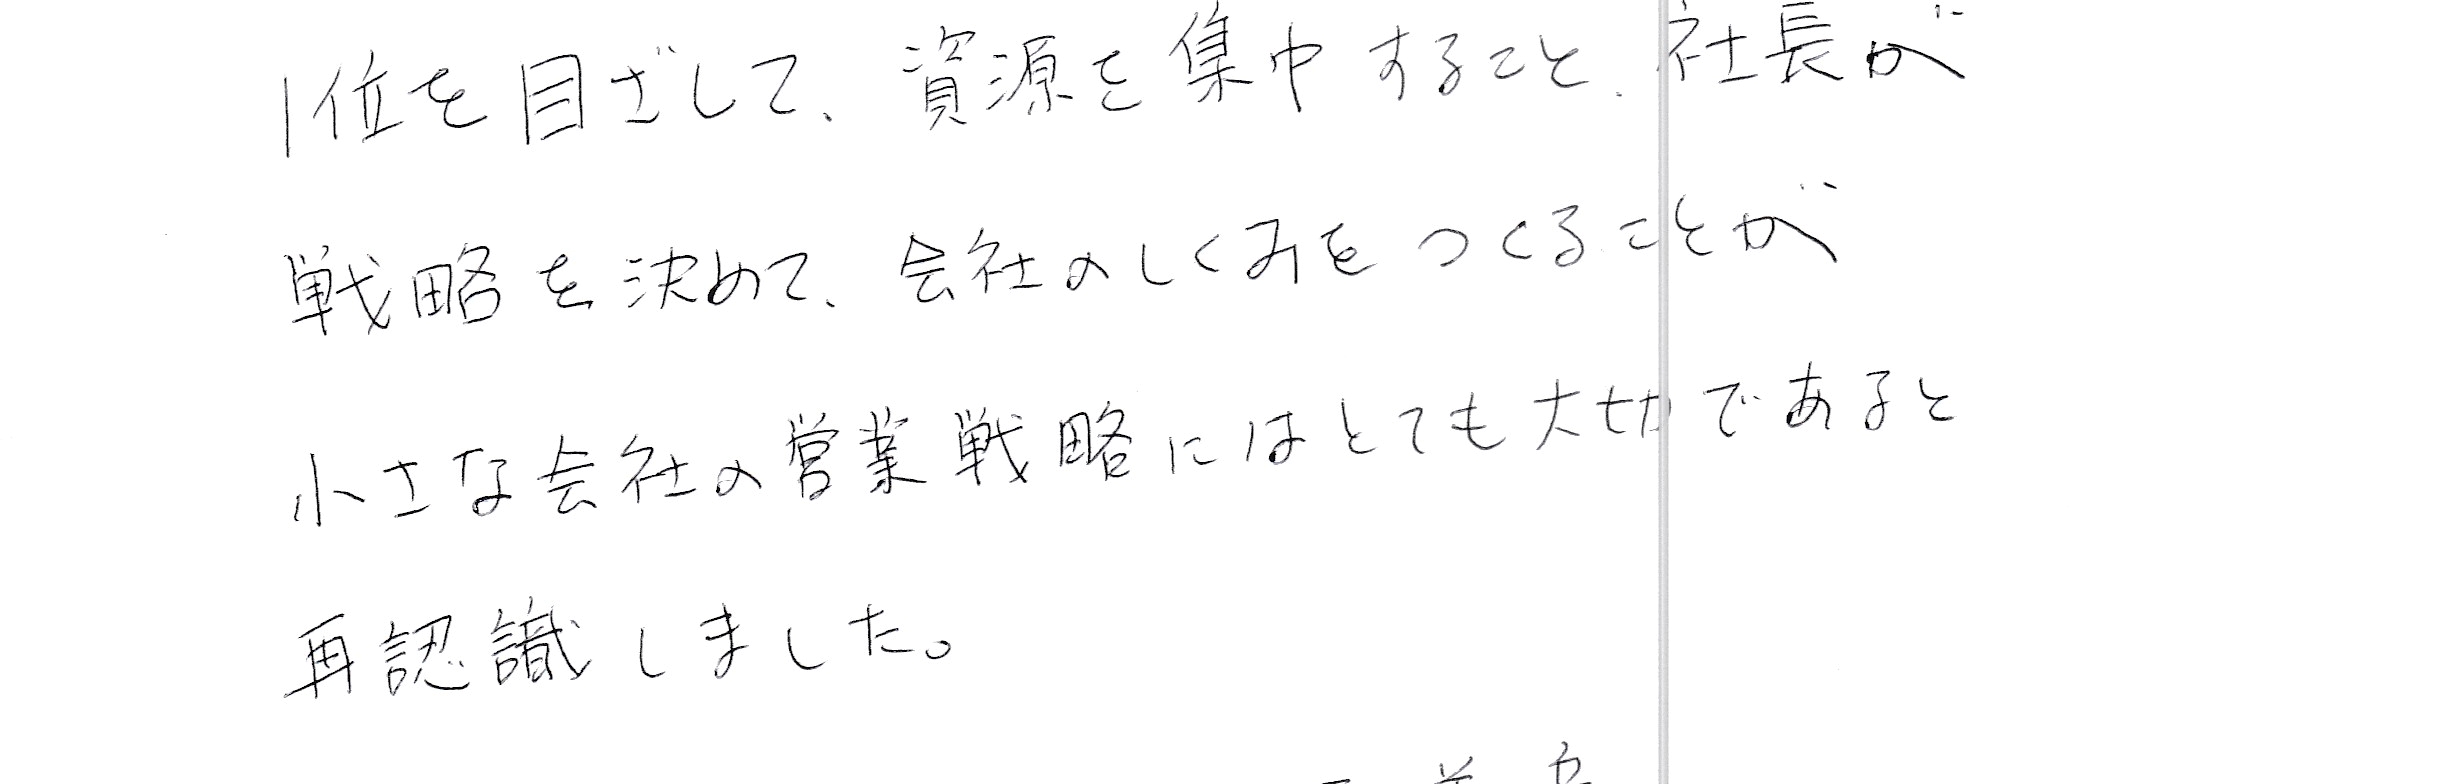 1位を目ざして、資源を集中すること、社長が
戦略を決めて、会社のしくみをつくることが
小さな会社の営業戦略にはとても大切であると
再認識しました。